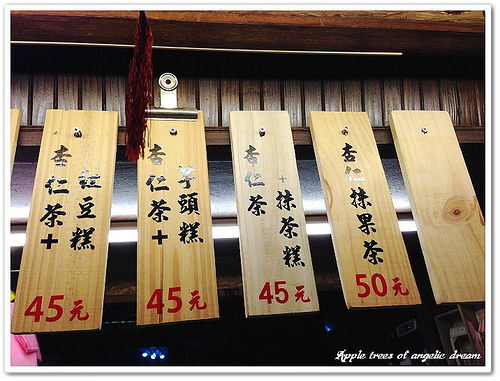 杏仁茶+
紅豆糕
45元
杏仁茶+
芋頭糕
45元
杏仁茶
+抹茶糕
45元
杏仁抹果茶
50元
Apple trees of angelic dream